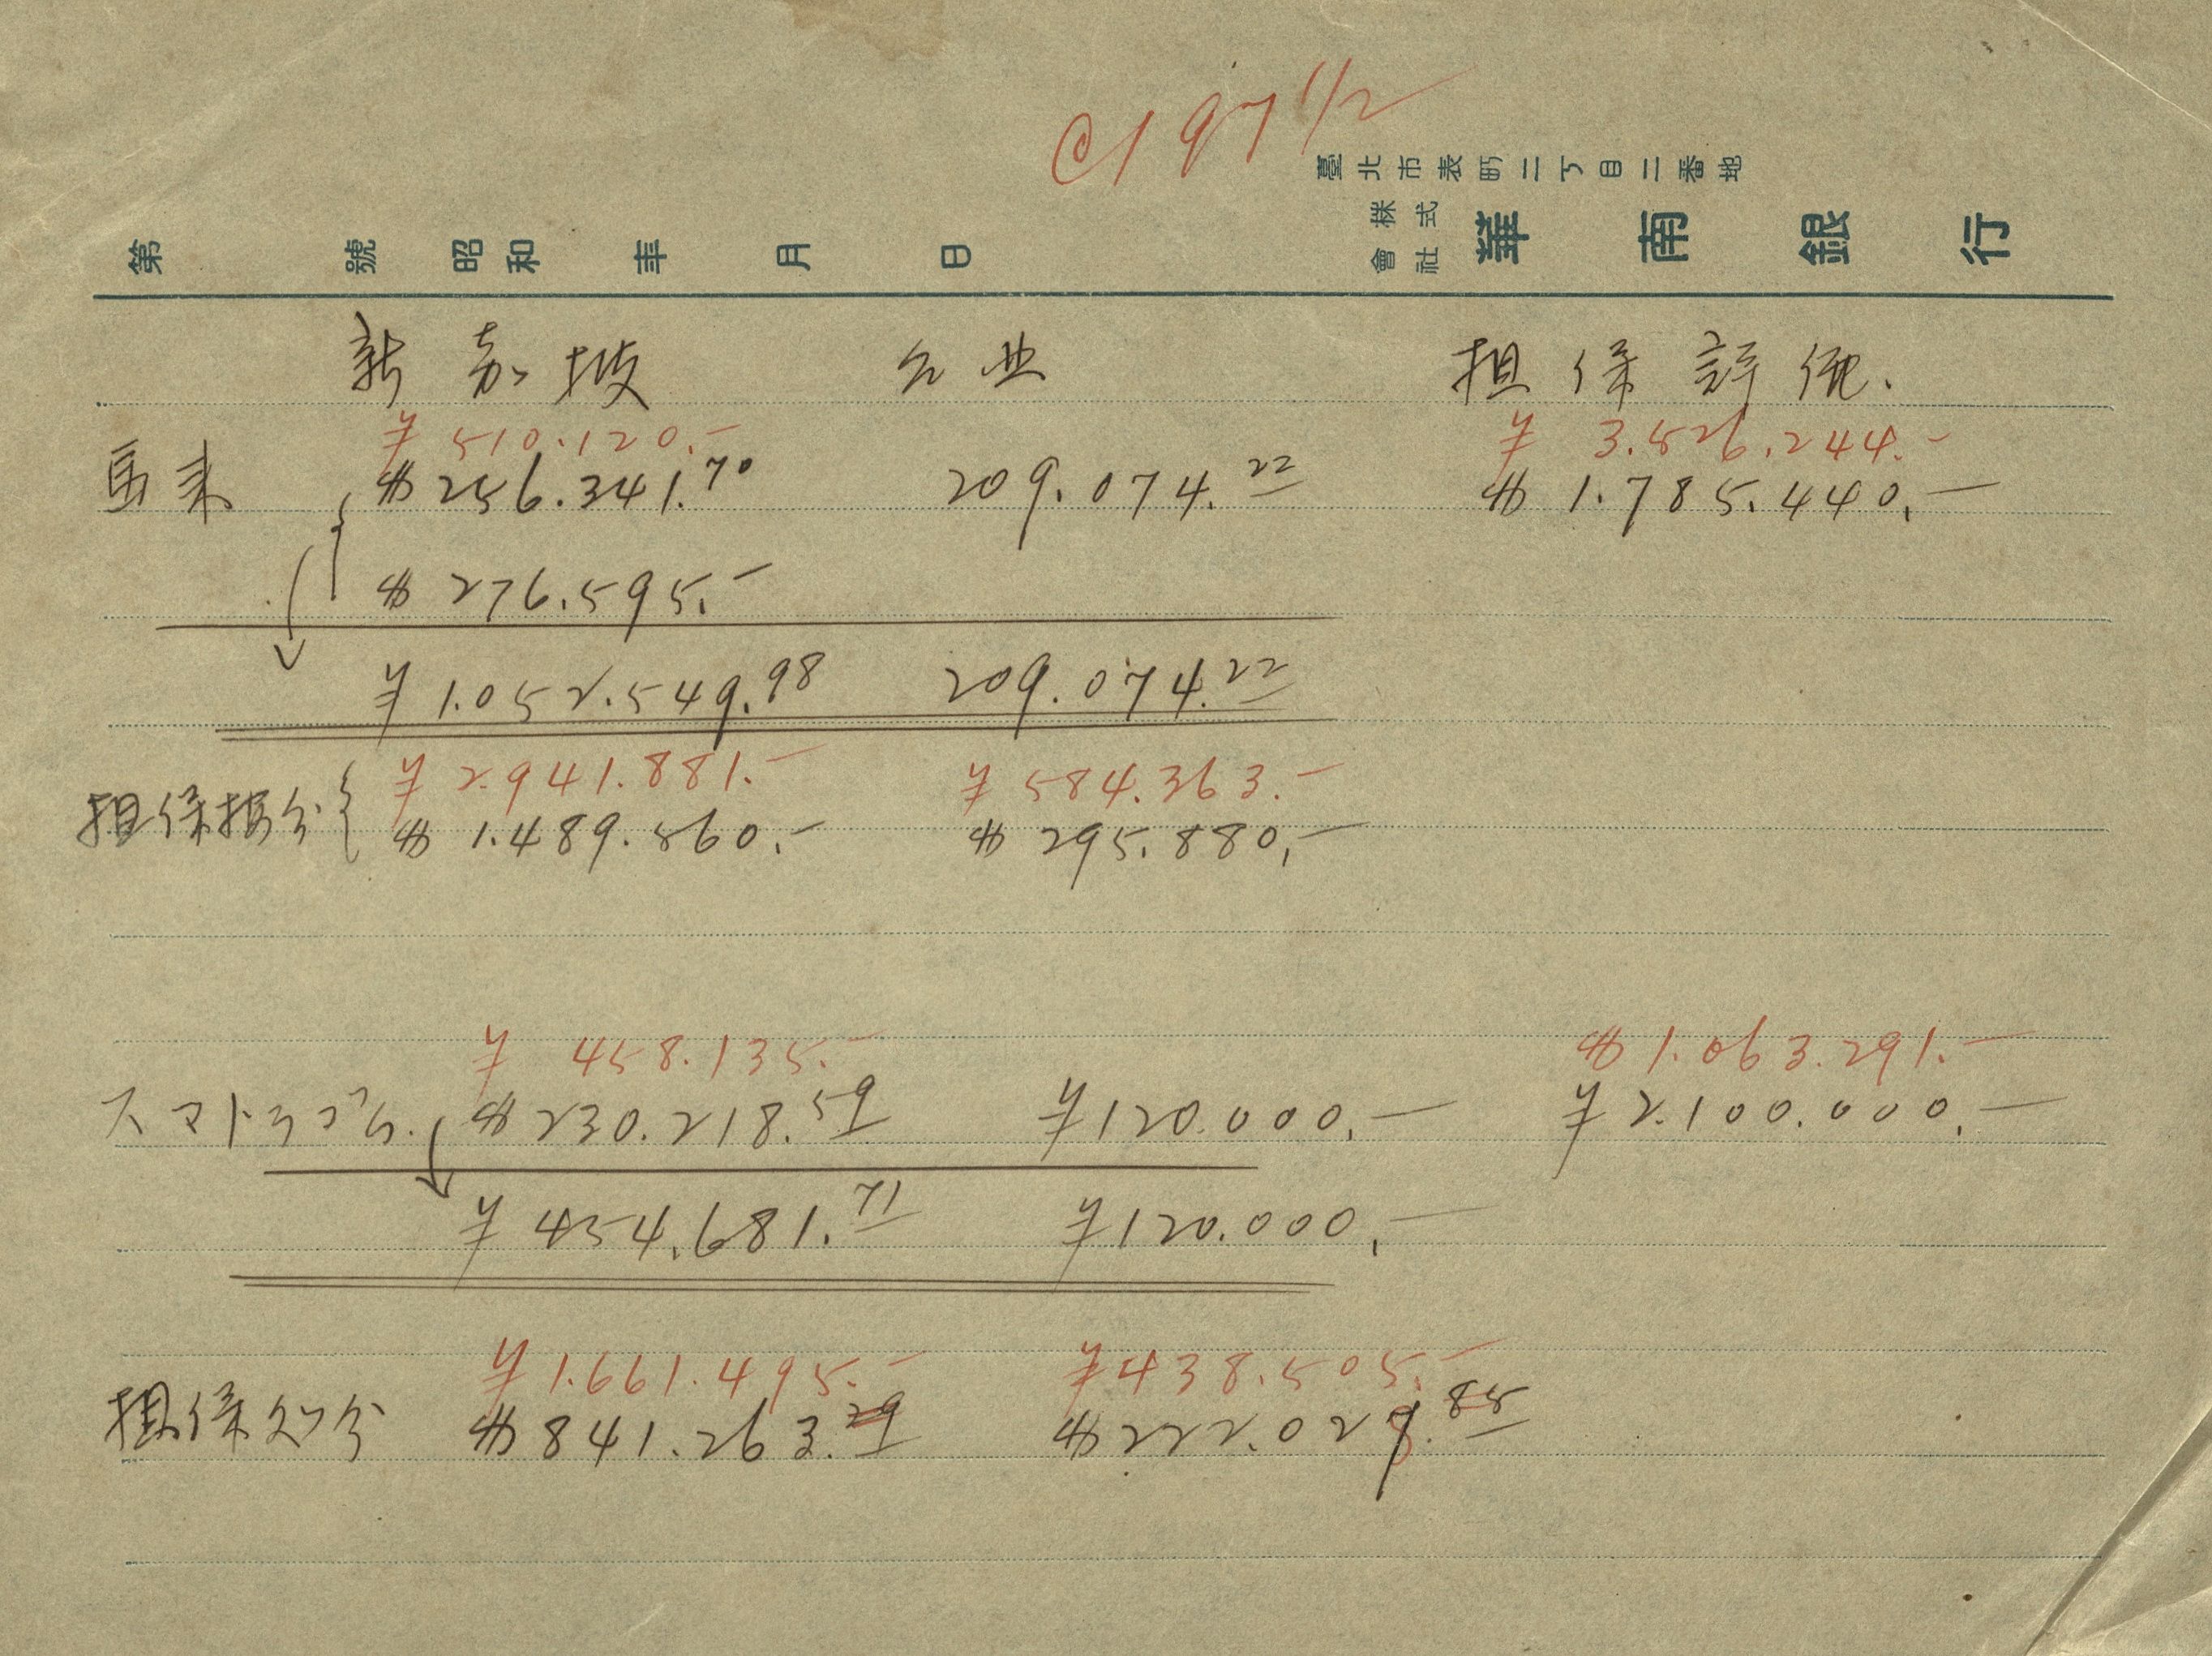 @197 1/2
臺北市表町二丁目二番地
株式會社 華南銀行
第 號 昭和 年 月 日
新嘉坡 台北 担保評価.
¥ 510.120.- ¥ 3.526.244.-
馬来 $ 256.341.70 209.074.22 $ 1.785.440.-
$ 276.595.-
¥ 1.052.549.98 209.074.22
¥ 2.941.881.- ¥ 584.363.-
担保按分 $ 1.489.560.- $ 295.880.-
¥ 458.135.- $ 1.063.291.-
スマトラゴム. $ 230.218.59 ¥ 120.000.- ¥ 2.100.000.-
¥ 454.681.71 ¥ 120.000.-
¥ 1.661.495.- ¥ 438.505.-
担保処分 $ 841.263.29 $ 222.027.85